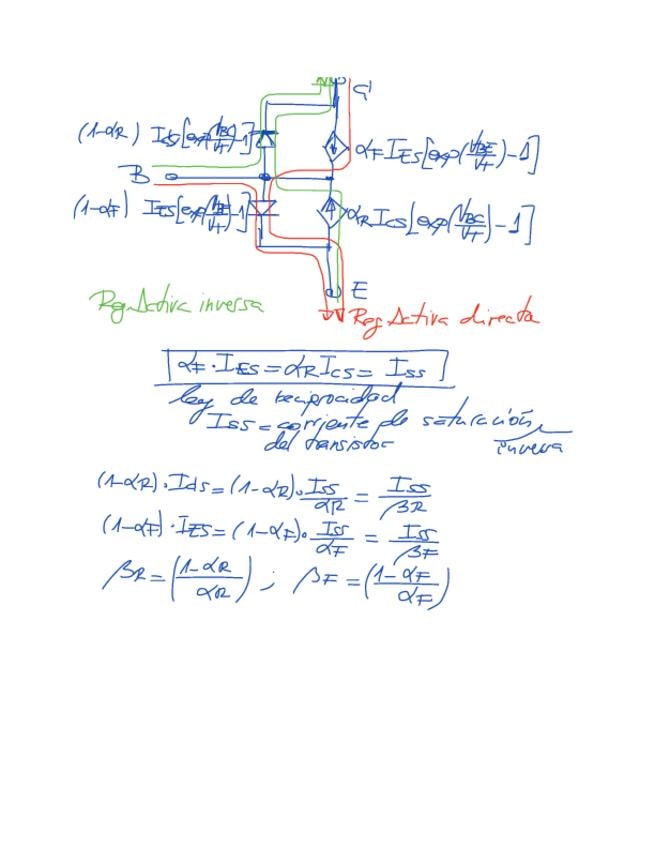 C
(1-αR) Ics[exp(VBC/VT)-1]
αF IES[exp(VBE/VT)-1]
B
(1-αF) IES[exp(VBE/VT)-1]
αR ICS[exp(VBC/VT)-1]
E
Reg. Activa inversa
Reg Activa directa
αF·IES=αR ICS= ISS
ley de reciprocidad
ISS = corriente de saturación
del transistor
inversa
(1-αR)·Ids=(1-αR)·ISS/αR = ISS/βR
(1-αF)·IES=(1-αF)·ISS/αF = ISS/βF
βR=(1-αR/αR) ; βF=(1-αF/αF)